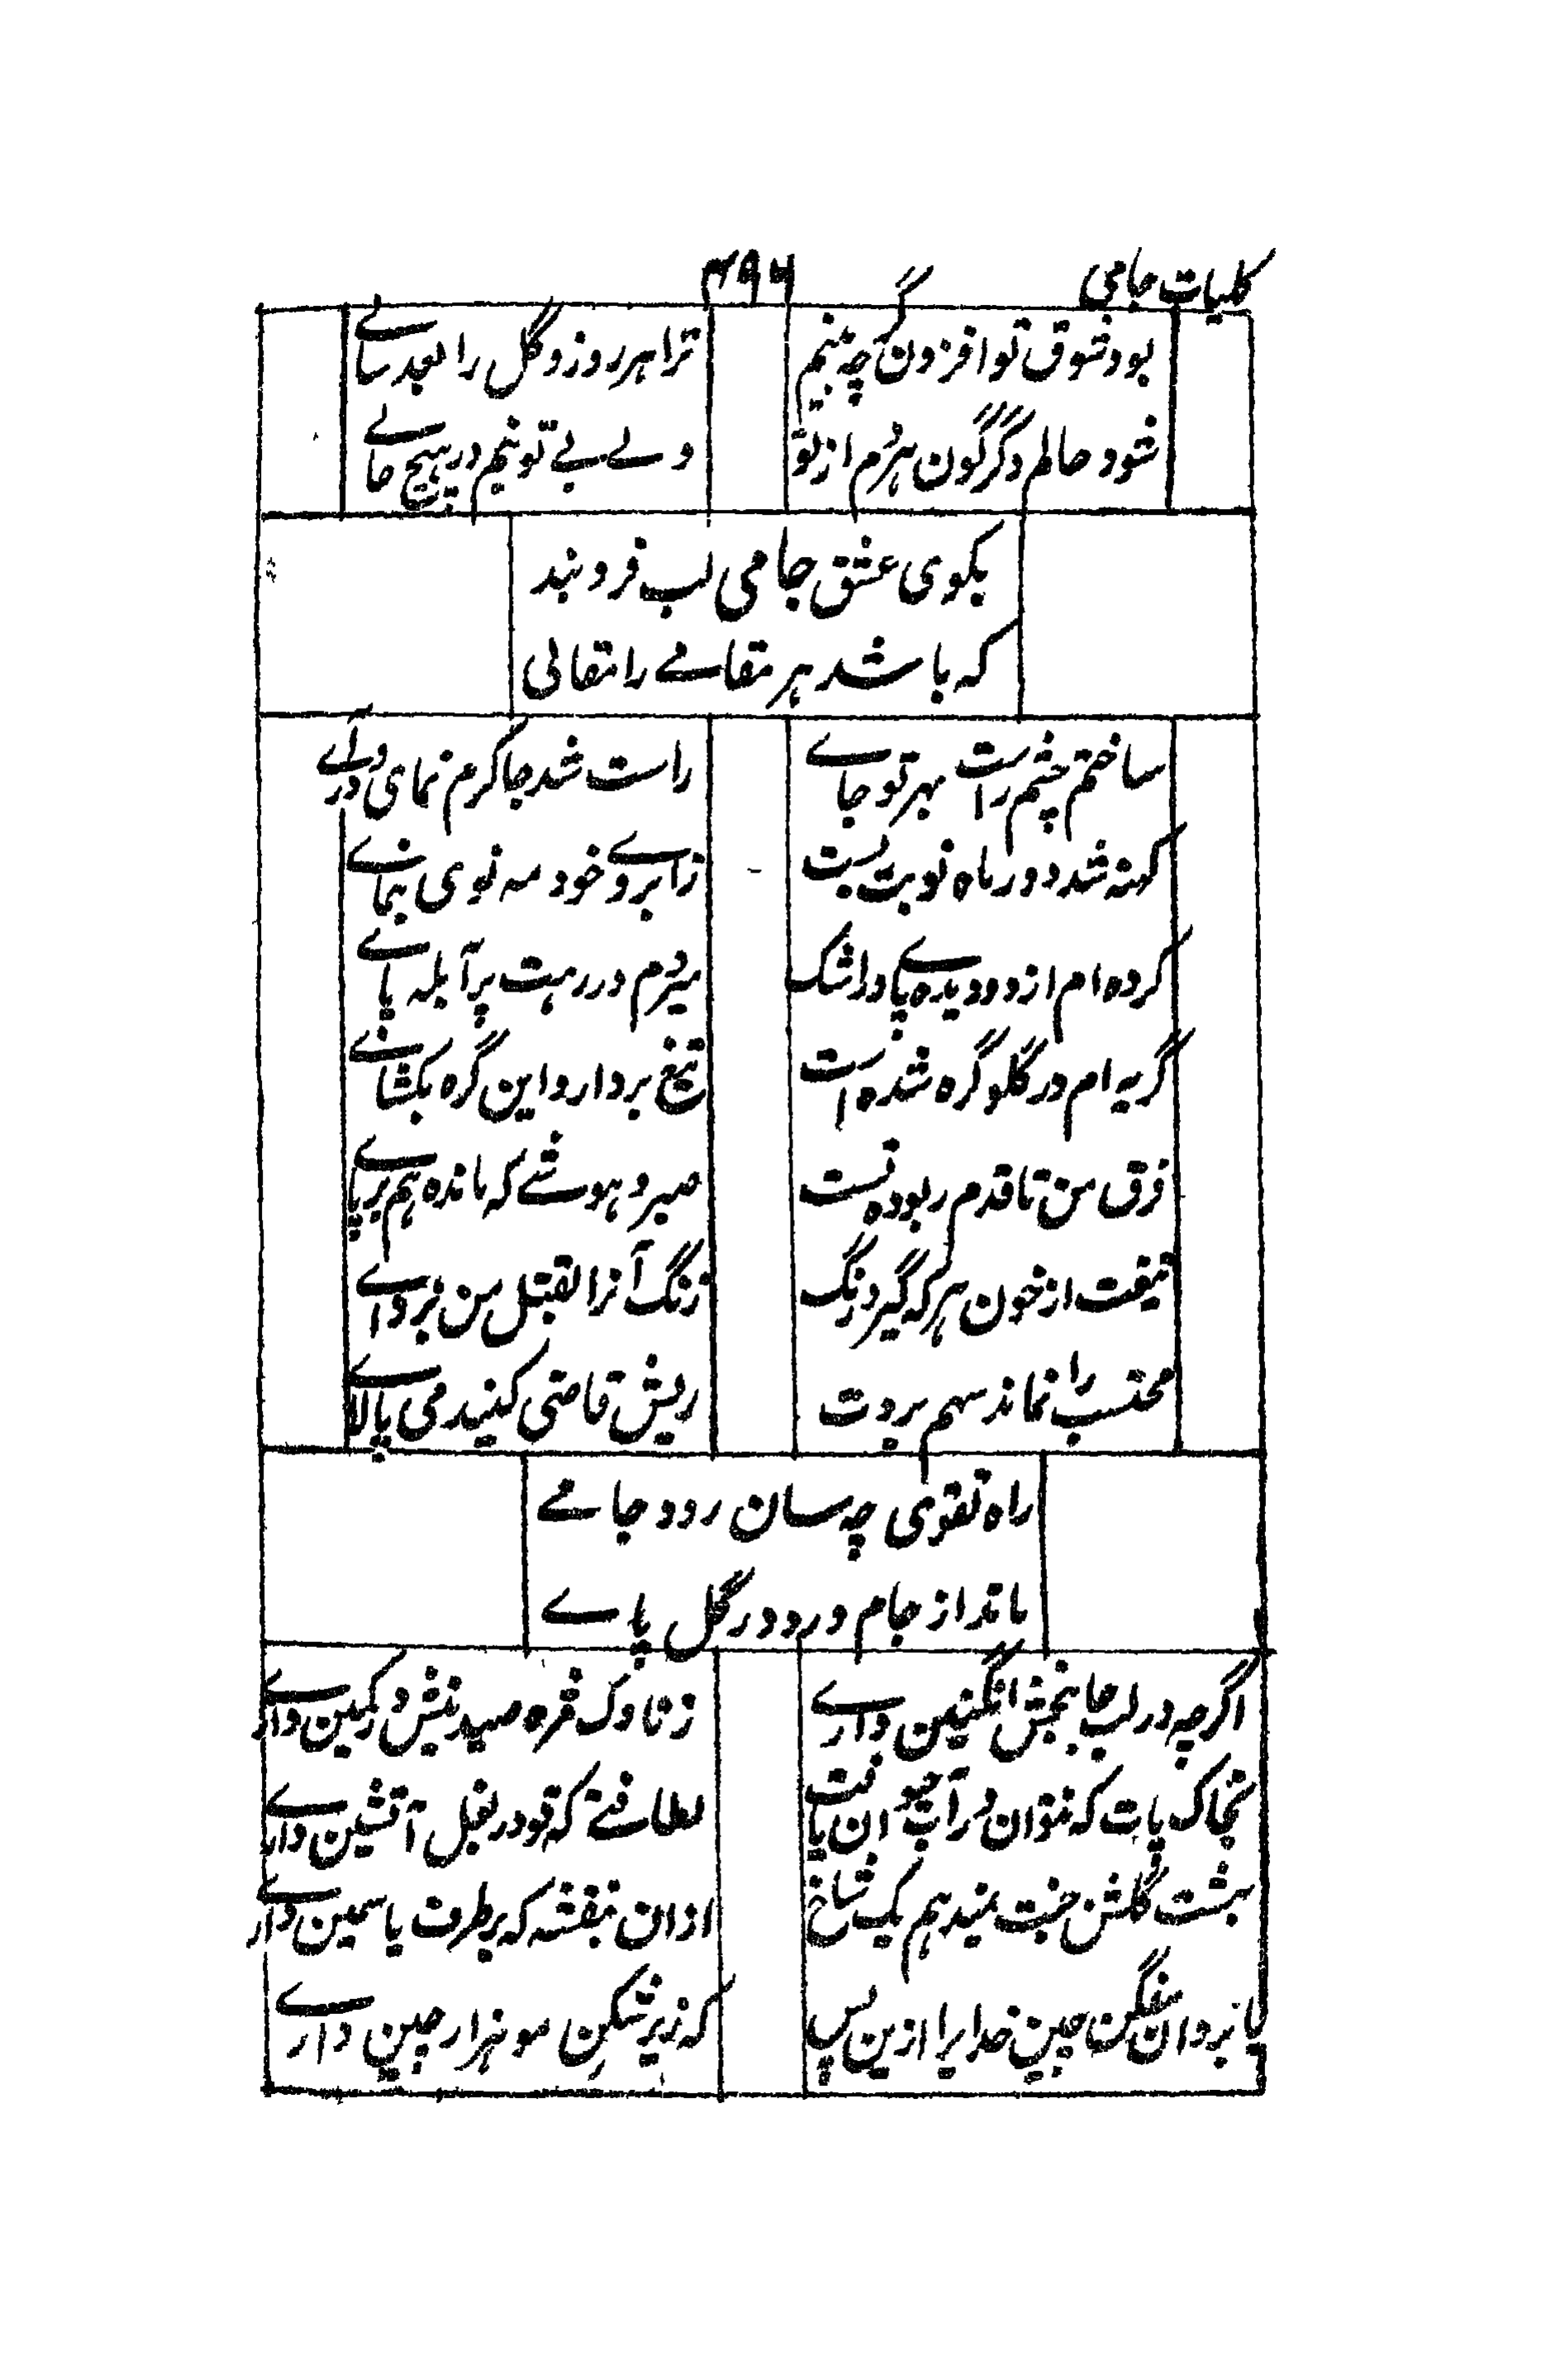 کلیات جامی
۴۹۶
بود شوق تو افزون گرچه بینم
ترا هر روز و گل را بعد سالے
شود حالم دگرگون هر دم از تو
ولے بے تو نیم در هیچ حالے
بکوی عشق جامی لب فرو بند
که باشد هر مقامے را مقالی
ساختم چشم راست بهر تو جاے
راست شد جا کرم نمای و درآے
کهنه شد دور ماه نوبت تست
ز ابروے خود مه نوی بنماے
کرده ام از دو دیده پا و اشک
میروم در رهت پر آبله پاے
گریه ام در گلو گره شده است
تیغ بردار و این گره بکشاے
فرق من تا قدم ربوده تست
صبر و هوشے که مانده هم برباے
تیغت از خون هر که گیرد رنگ
زنگ آنرا بقتل من بزداے
محتسب را نماند سهم بروت
ریش قاضی کنید می پالاے
راه تقوی چه سان رود جامے
ماند از جام و درد در گل پاے
اگرچه در لب جانبخش انگبین دارے
ز ناوک مژه صید نیش در کمین دارے
بخاک پات که نتوان در آب حیوان یافت
لطافتے که تو در بغل آتشین دارے
بهشت گلشن جنت نمیدهم یک شاخ
ازان بنفشه که بر طرف یاسمین دارے
بابروان مفگن چین خدایرا ازین پس
که زیر شکن مو هزار چین دارے